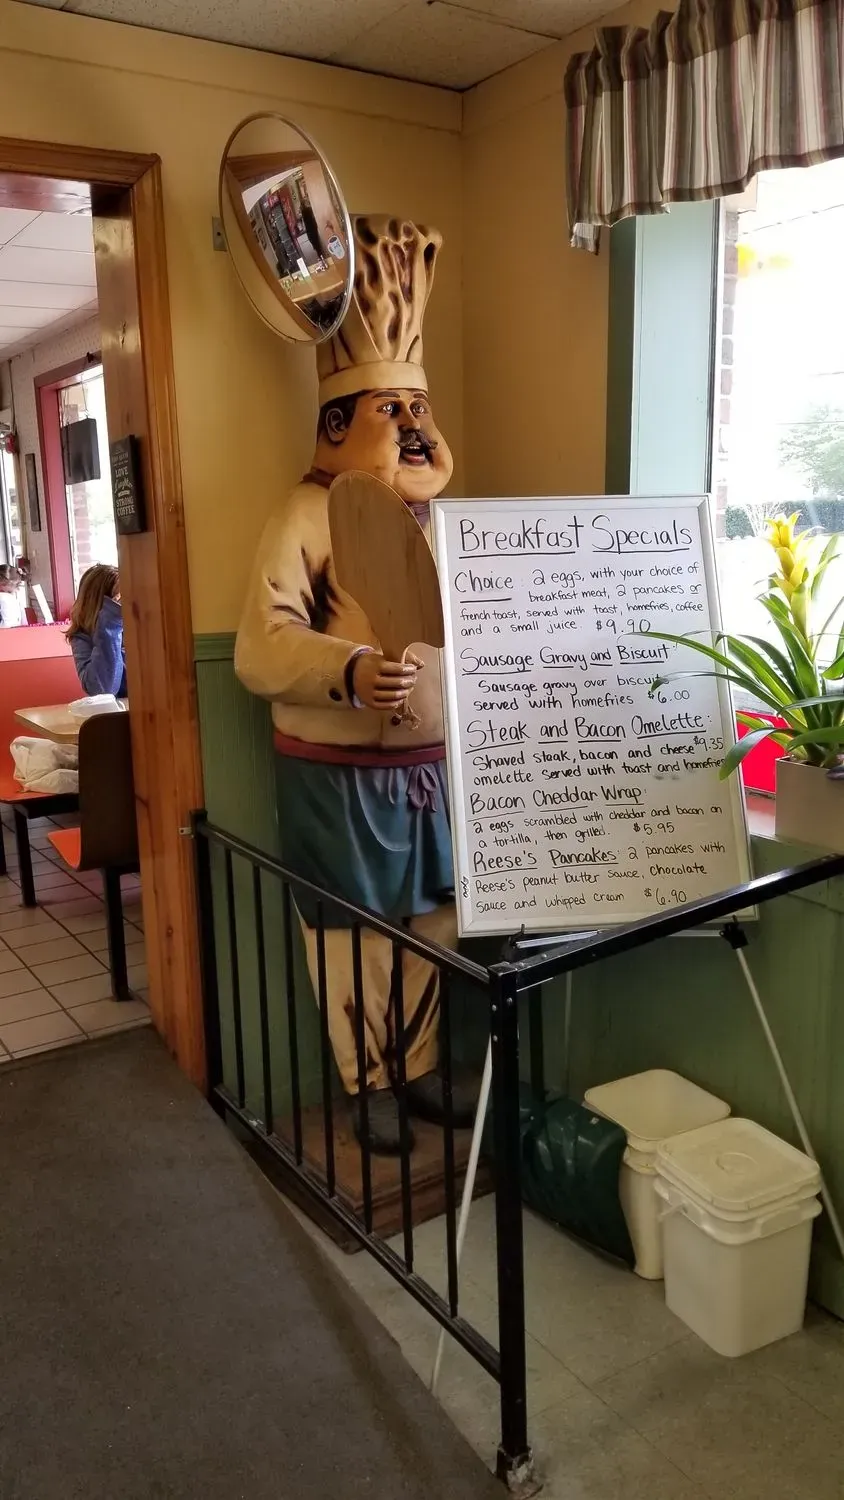 LOVE
Laughter
AND
STRONG
COFFEE
Breakfast Specials
Choice: 2 eggs, with your choice of
breakfast meat, 2 pancakes or
french toast, served with toast, homefries, coffee
and a small juice $9.90
Sausage Gravy and Biscuit:
Sausage gravy over biscuit
served with homefries $6.00
Steak and Bacon Omelette:
Shaved steak, bacon and cheese $9.35
omelette served with toast and homefries
Bacon Cheddar Wrap:
2 eggs scrambled with cheddar and bacon on
a tortilla, then grilled. $5.95
Reese's Pancakes: 2 pancakes with
Reese's peanut butter sauce, chocolate
sauce and whipped cream $6.90